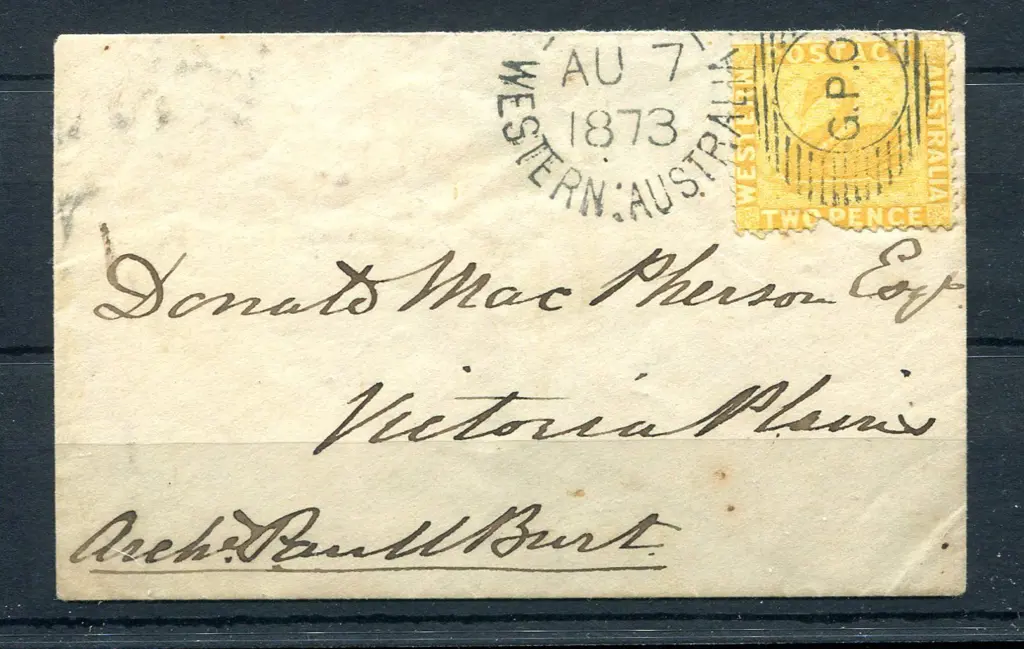 AU 7
1873
WESTERN AUSTRALIA
G.P.O
POSTAGE
WESTERN
AUSTRALIA
TWO PENCE
Donald Mac Pherson Esqr
Victoria Plains
Archd. Paull Burt